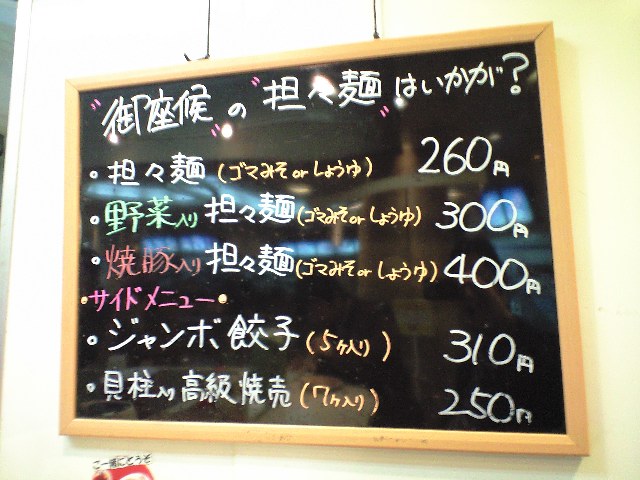 "御座候"の"担々麺"はいかが?
・担々麺(ゴマみそorしょうゆ) 260円
・野菜入り担々麺(ゴマみそorしょうゆ) 300円
・焼豚入り担々麺(ゴマみそorしょうゆ) 400円
・サイドメニュー・
・ジャンボ餃子(5ヶ入り) 310円
・貝柱入り高級焼売(7ヶ入り) 250円
ご一緒にどうぞ